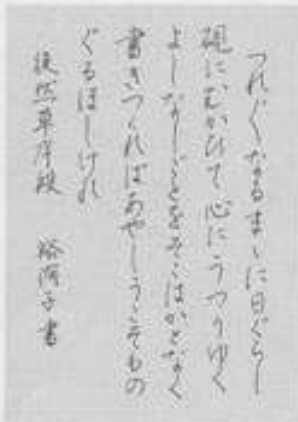 つれ〴〵なるまゝに日ぐらし
硯にむかひて心にうつりゆく
よしなしごとをそこはかとなく
書きつくればあやしうこそもの
ぐるほしけれ
徒然草序段 書